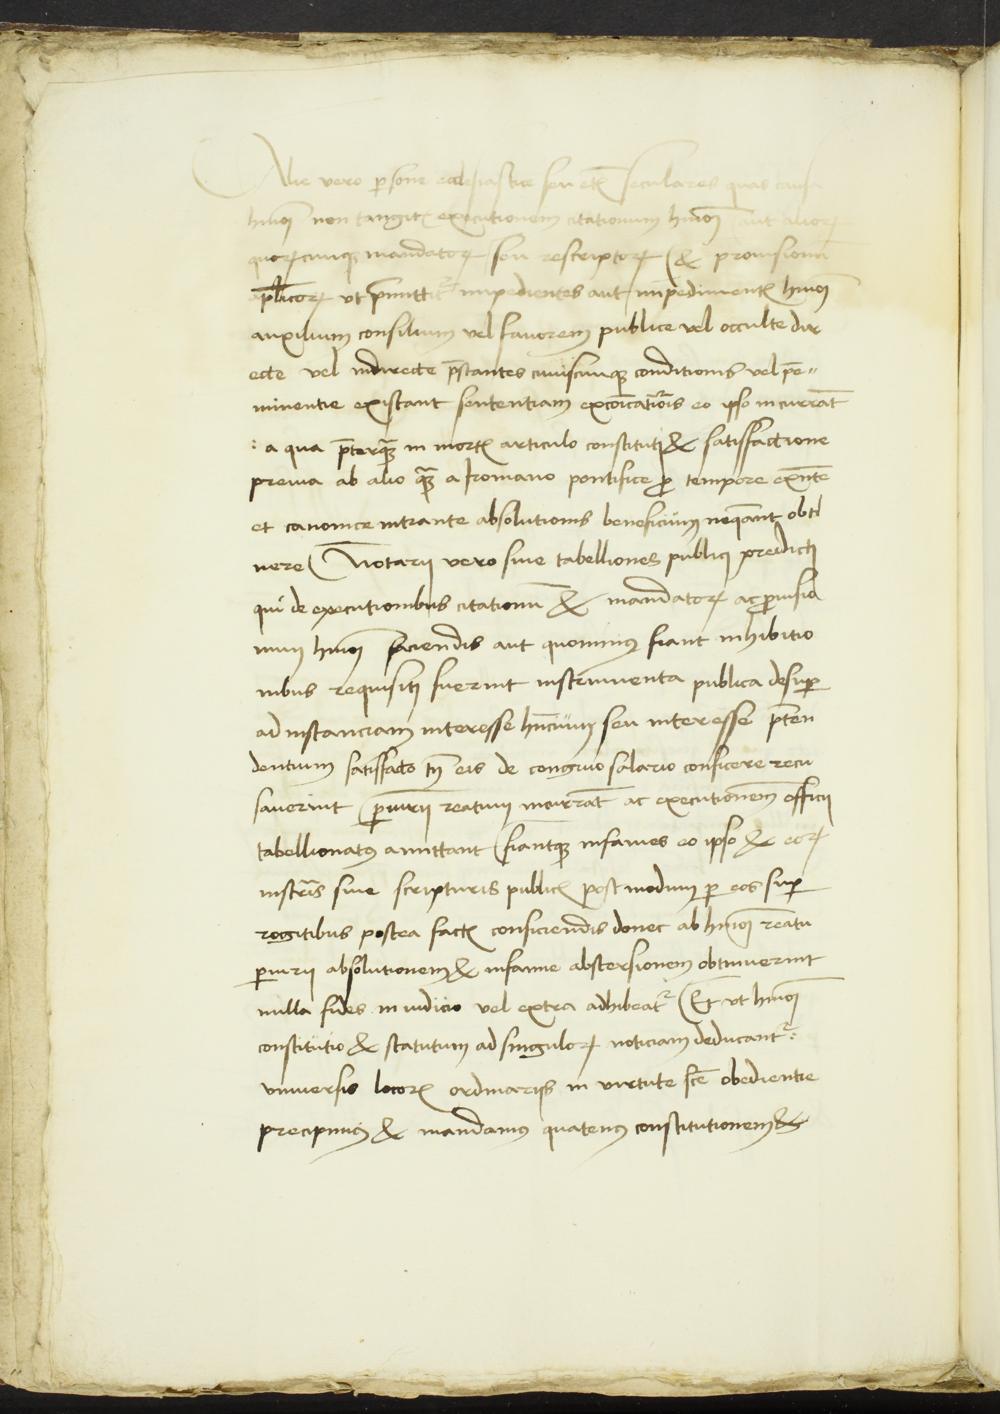 Alie vero p̱sone ecclesiastice seu etꝫ seculares quas causa
hmōi non tangitꝫ executionem citationum hmōi aut alioꝝ
quoꝝcunqꝫ mandatoꝝ seu rescriptoꝝ & prouisionū
apl̄icoꝝ vt p̄mittit᷑ impedientes aut impedimentꝫ hmōi
auxilium consilium vel fauorem publice vel occulte dir
ecte vel indirecte p̄stantes cuiuscunqꝫ conditionis vel p̄e〃
minentie existant sententiam excōicatiōis eo ipso incurrāt
: a qua p̄terqꝫ̄ in mortꝫ articulo constituti & satisfactione
preuia ab alio qꝫ̄ a romano pontifice ꝓ tempore exn̄te
et canonice intrante absolutionis beneficium neqāant obti
nere Notarij vero siue tabelliones publici predicti
qui de executionibus citationū & mandatoꝝ ac ꝓuisio
num hmōi faciendis aut quominꝰ fiant inhibitio
nibus requisiti fuerint instrumenta publica desuꝑ
ad instanciam interesse hn̄cium seu interesse p̄ten
dentium satisfacto tn̄ eis de congruo salario conficere recu
sauerint ꝑiurij reatum incurrāt ac executionem officij
tabellionatꝰ amittant fiantqꝫ infames eo ipso & eoꝝ
instr̄is siue scripturis publicꝫ post modum ꝑ eos suꝑ
rogitibus postea factꝫ conficiendis donec ab hmōi reatu
ꝑiurij absolutionem & infamie abstersionem obtinuerint
nulla fides in iudicio vel extra adhibeat᷑ Et vt hmōi
constitutio & statutum ad singuloꝝ noticiam deducant᷑ :
vniuersis locoꝝ ordinarijs in virtute sc̄e obedientie
precipimꝰ & mandamꝰ quatenꝰ constitutionem &